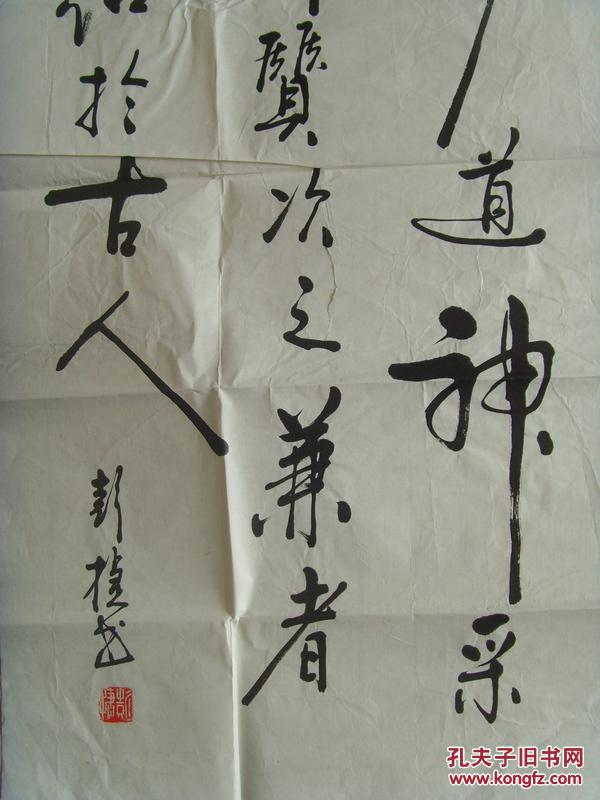 道神采
質次之兼者
於古人
彭
书
孔夫子旧书网
www.kongfz.com